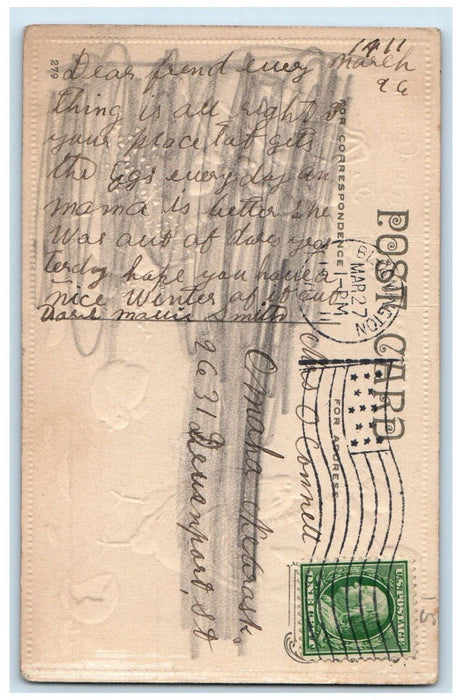 279
1911
Dear frend every March
thing is all right 26
your place tat gets
the Egs every day an
mama is better She
Was out of dores yes
terday hope you have a
nice Winter of it out
Marie Smith
POST CARD
FOR CORRESPONDENCE
FOR ADDRESS
MAR 27
1-PM
Mrs O Connell
Omaha Nebrask.
2631 Devenport, St
U.S. POSTAGE
ONE CENT
5